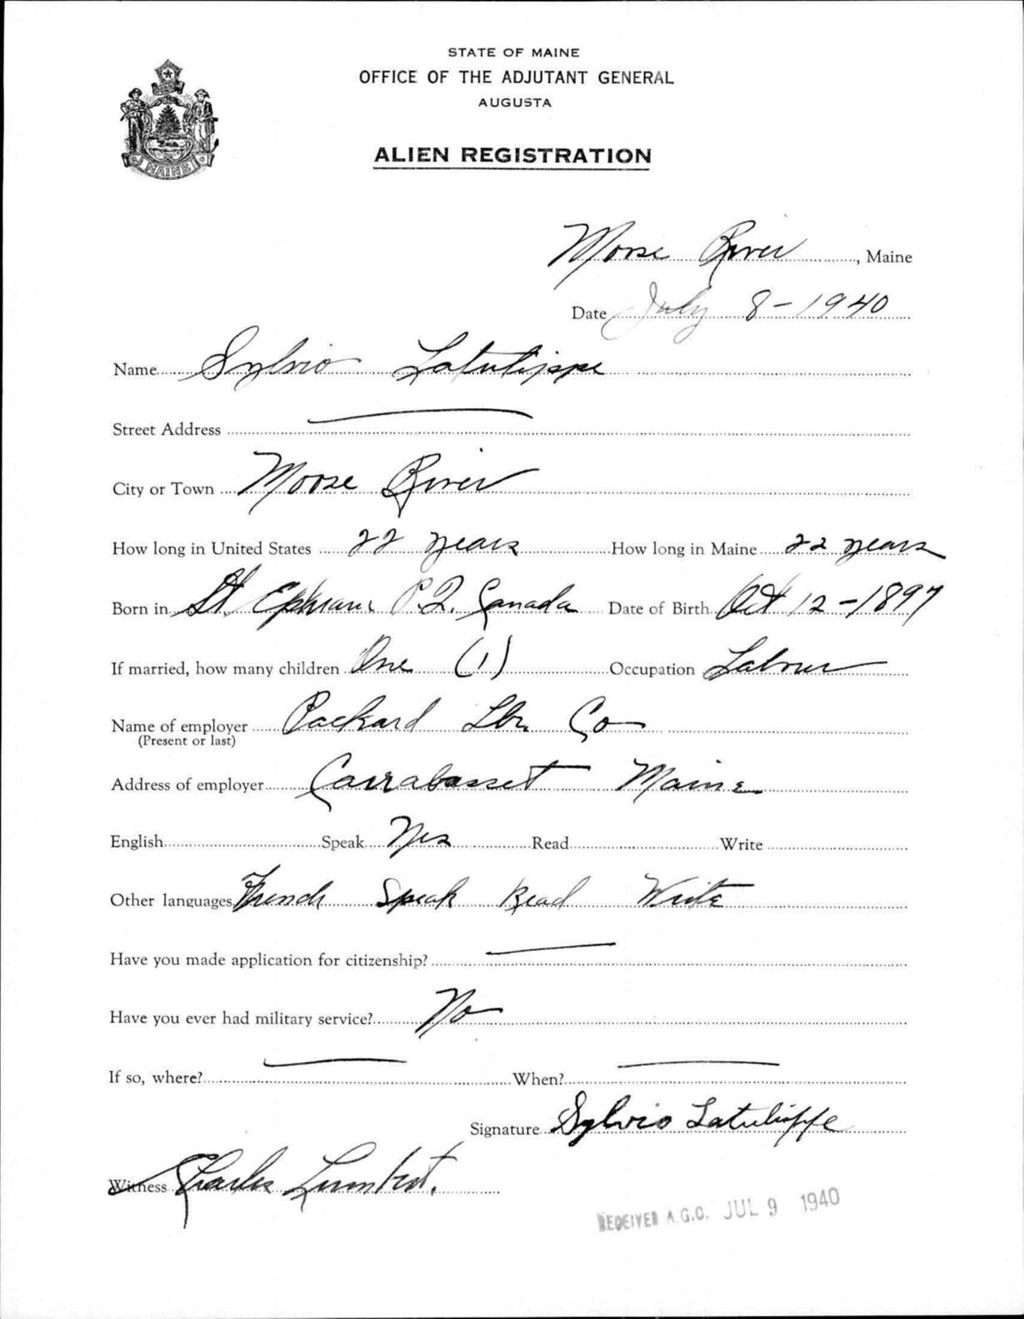 STATE OF MAINE
OFFICE OF THE ADJUTANT GENERAL
AUGUSTA
ALIEN REGISTRATION
MAINE
Moose River, Maine
Date July 8-1940
Name Sylvio Latulippe
Street Address
City or Town Moose River
How long in United States 22 years How long in Maine 22 years
Born in St. Ephram P.Q. Canada Date of Birth Oct 12-1897
If married, how many children One (1) Occupation Laborer
Name of employer Packard Lbr. Co
(Present or last)
Address of employer Carrabasset Maine
English Speak Yes Read Write
Other languages French Speak Read Write
Have you made application for citizenship?
Have you ever had military service? No
If so, where? When?
Signature Sylvio Latulippe
Witness Charles Lumbert.
RECEIVED A.G.O. JUL 9 1940